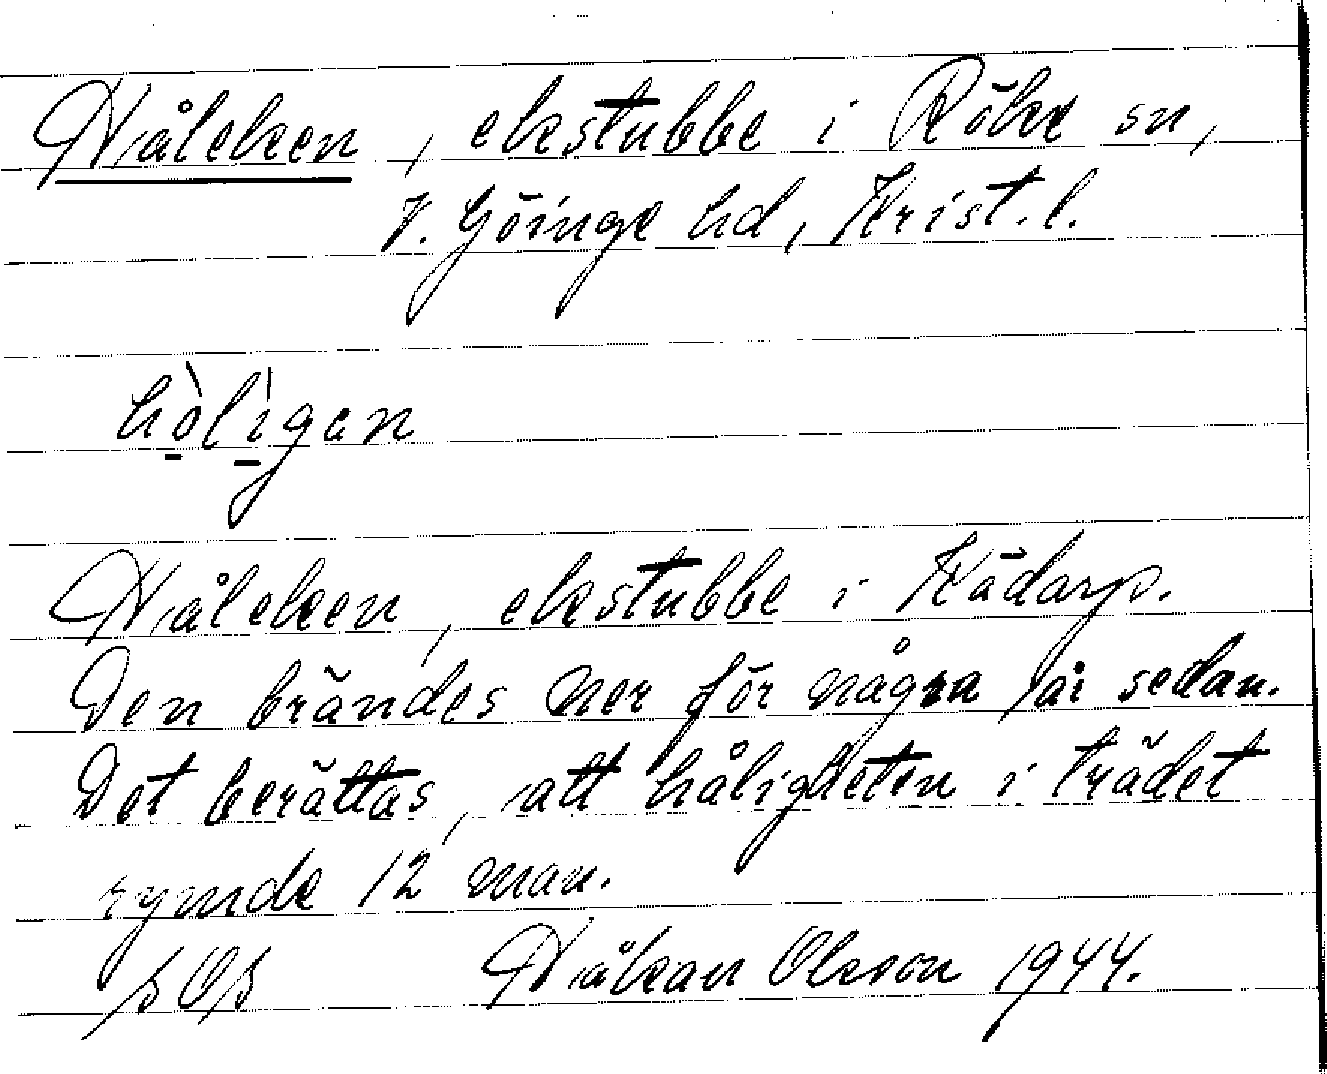 Håleken, ekstubbe i Röke sn,
V. Göinge hd, Krist. l.
hòlìgan
Håleken, ekstubbe i Kädarp.
Den brändes ner för några år sedan.
Det berättas, att håligheten i trädet
rymde 12 man.
SOS Håkan Olsson 1944.